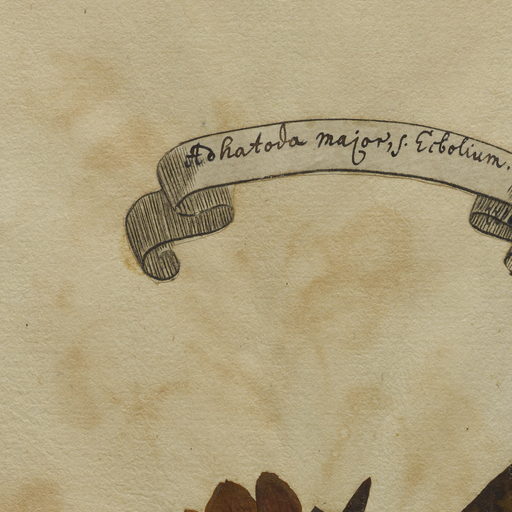 Adhatoda major, s. Ecbolium.